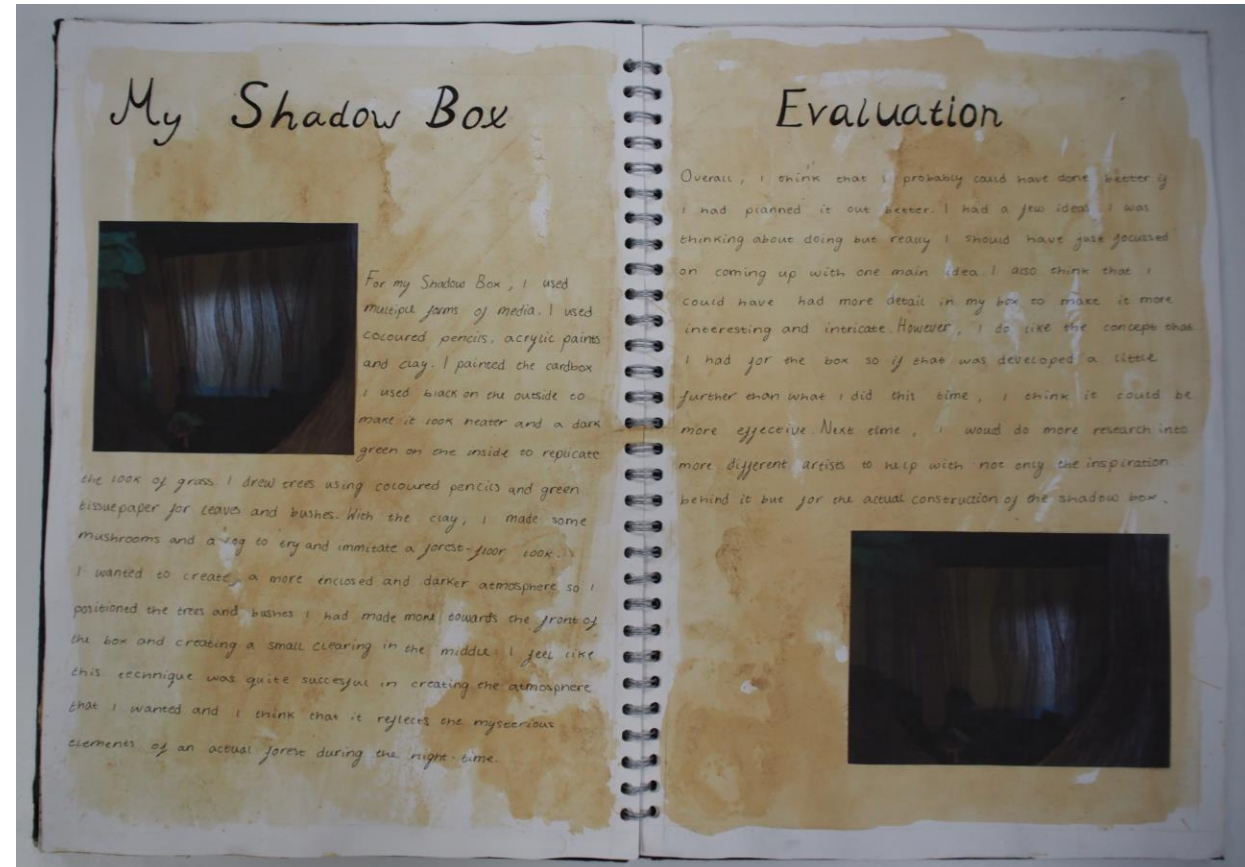 My Shadow Box
For my Shadow Box, I used
multiple forms of media. I used
coloured pencils, acrylic paints
and clay. I painted the cardbox
I used black on the outside to
make it look neater and a dark
green on the inside to replicate
the look of grass. I drew trees using coloured pencils and green
tissuepaper for leaves and bushes. With the clay, I made some
mushrooms and a log to try and immitate a forest-floor look.
I wanted to create a more enclosed and darker atmosphere so I
positioned the trees and bushes I had made more towards the front of
the box and creating a small clearing in the middle. I feel like
this technique was quite succesful in creating the atmosphere
that I wanted and I think that it reflects the mysterious
elements of an actual forest during the night-time.
Evaluation
Overall, I think that I probably could have done better if
I had planned it out better. I had a few ideas I was
thinking about doing but really I should have just focussed
on coming up with one main idea. I also think that I
could have had more detail in my box to make it more
interesting and intricate. However, I do like the concept that
I had for the box so if that was developed a little
further than what I did this time, I think it could be
more effective. Next time, I woud do more research into
more different artists to help with not only the inspiration
behind it but for the actual construction of the shadow box.